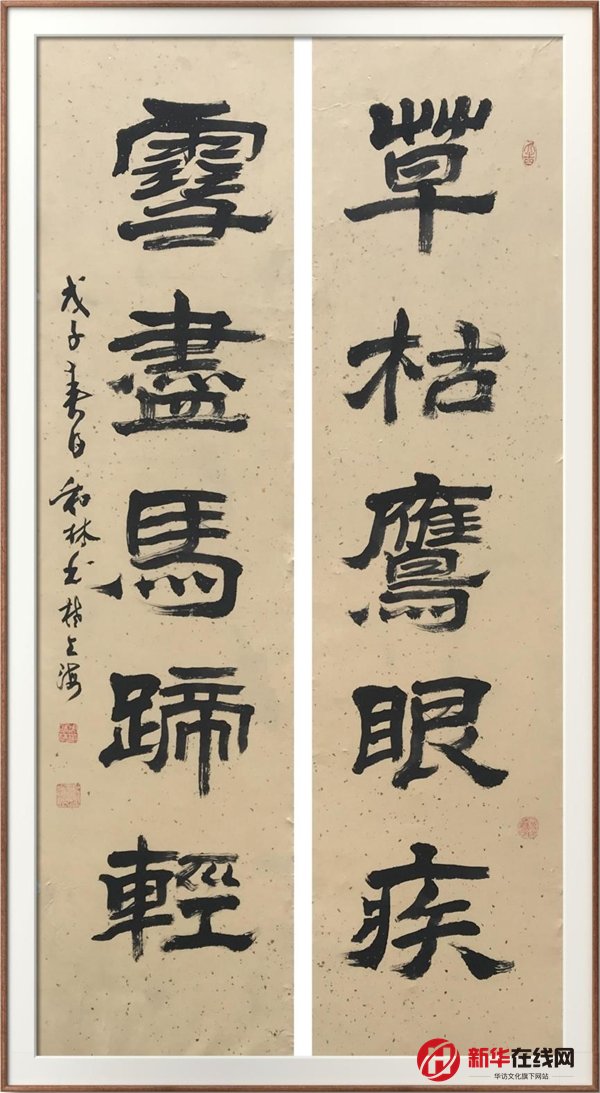 草枯鷹眼疾
雪盡馬蹄輕
戊子春日和林書於上海
新华在线网
华访文化旗下网站